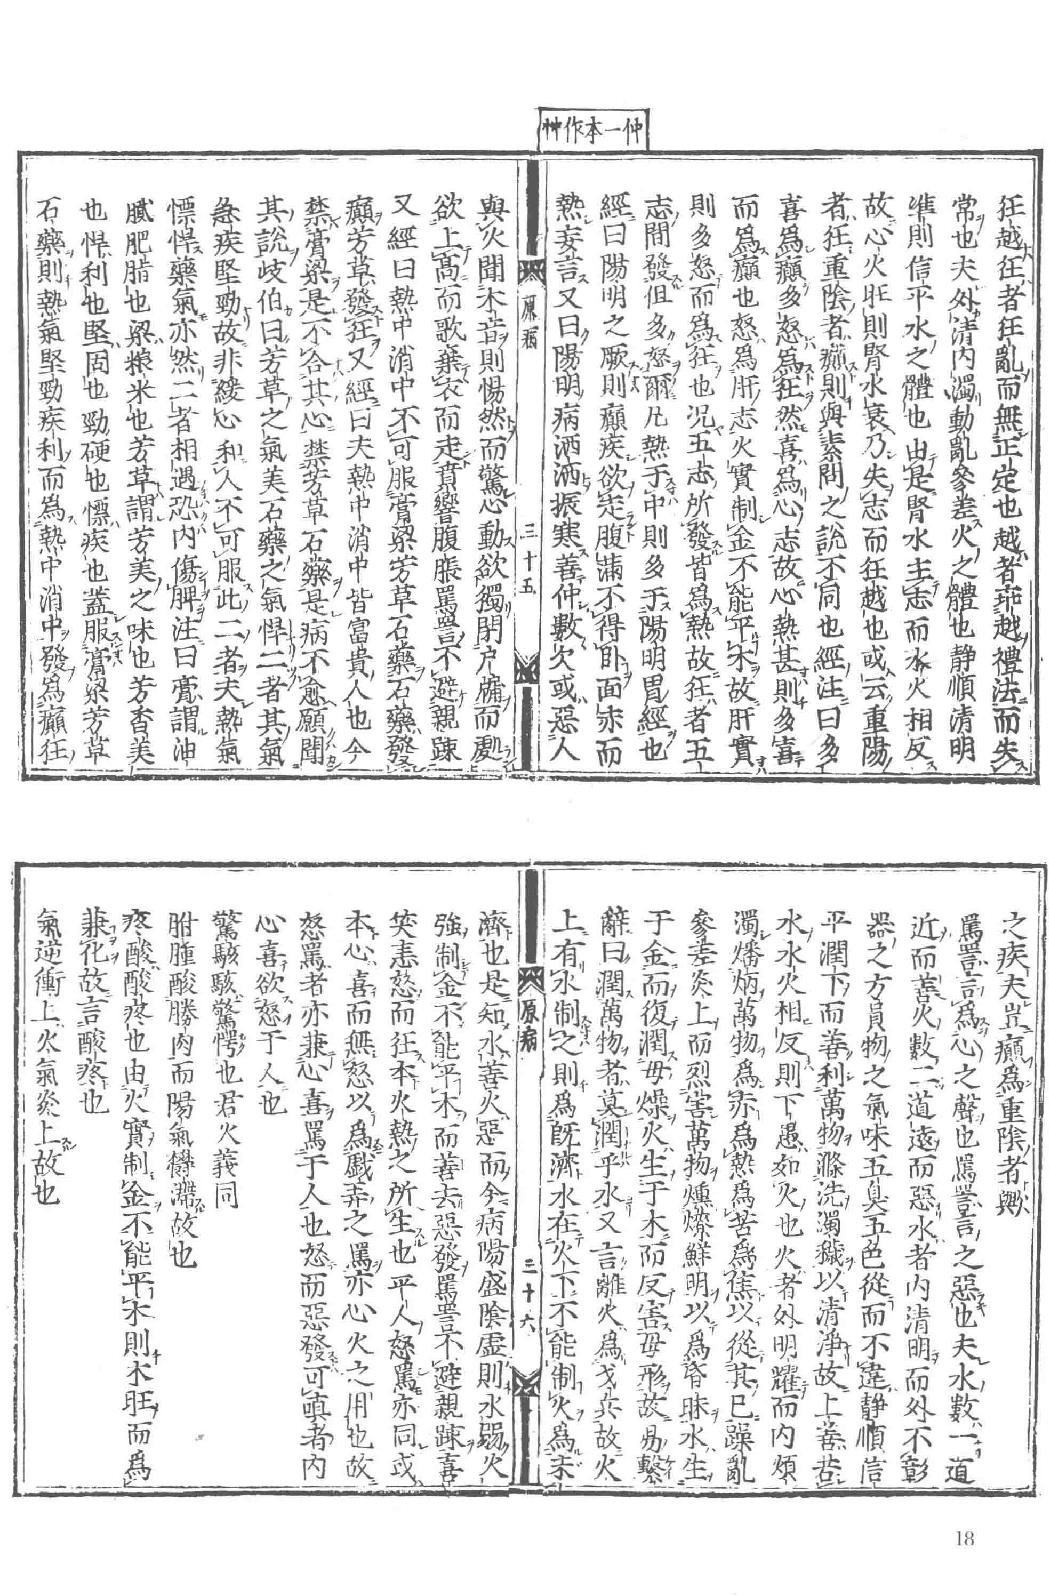 仲一本作艸
狂越狂者狂亂而無正定也越者乖越禮法而失
常也夫外清内濁動亂參差火之體也静順清明
準則信平水之體也由是腎水主志而水火相反
故心火旺則腎水衰乃失志而狂越也或云重陽
者狂重陰者癲則與素問之說不同也經注曰多
喜爲癲多怒爲狂然喜爲心志故心熱甚則多喜
而爲癲也怒爲肝志火實制金不能平木故肝實
則多怒而爲狂也况五志所發皆爲熱故狂者五
志間發但多怒爾凡熱于中則多于陽明胃經也
經曰陽明之厥則癲疾欲走腹滿不得卧面赤而
熱妄言又曰陽明病洒洒振寒善仲數欠或惡人
原病
三十五
與火聞木音則惕然而驚心動欲獨閉户牖而處
欲上高而歌棄衣而走賁響腹脹罵詈不避親踈
又經曰熱中消中不可服膏粱芳草石藥石藥發
癲芳草發狂又經曰夫熱中消中皆富貴人也今
禁膏粱是不合其心禁芳草石藥是病不愈願聞
其說歧伯曰芳草之氣美石藥之氣悍二者其氣
急疾堅勁故非緩心和人不可服此二者夫熱氣
慓悍藥氣亦然二者相遇恐内傷脾注曰膏謂油
膩肥脂也粱糧米也芳草謂芳美之味也芳香美
也悍利也堅固也勁硬也慓疾也蓋服膏粱芳草
石藥則熱氣堅勁疾利而爲熱中消中發爲癲狂
之疾夫豈癲爲重陰者歟
罵詈言爲心之聲也罵詈言之惡也夫水數一道
近而善火數二道遠而惡水者内清明而外不彰
器之方員物之氣味五臭五色從而不違静順信
平潤下而善利萬物滌洗濁穢以清淨故上善若
水水火相反則下愚如火也火者外明耀而内煩
濁燔焫萬物爲赤爲熱爲苦爲焦以從其已躁亂
參差炎上而烈害萬物燻燎鮮明以爲昏昧水生
于金而復潤母燥火生于木而反害母形故易繫
辭曰潤萬物者莫潤乎水又言離火爲戈兵故火
上有水制之則爲旣濟水在火下不能制火爲未
原病
三十六
濟也是知水善火惡而今病陽盛陰虚則水弱火
強制金不能平木而善去惡發罵詈不避親踈喜
笑恚怒而狂本火熱之所生也平人怒罵亦同或
本心喜而無怒以爲戲弄之罵亦心火之用也故
怒罵者亦兼心喜罵于人也怒而惡發可嗔者内
心喜欲怒于人也
驚駭駭驚愕也君火義同
胕腫酸勝肉而陽氣欝滯故也
疼酸酸疼也由火實制金不能平木則木旺而爲
兼化故言酸疼也
氣逆衝上火氣炎上故也
18